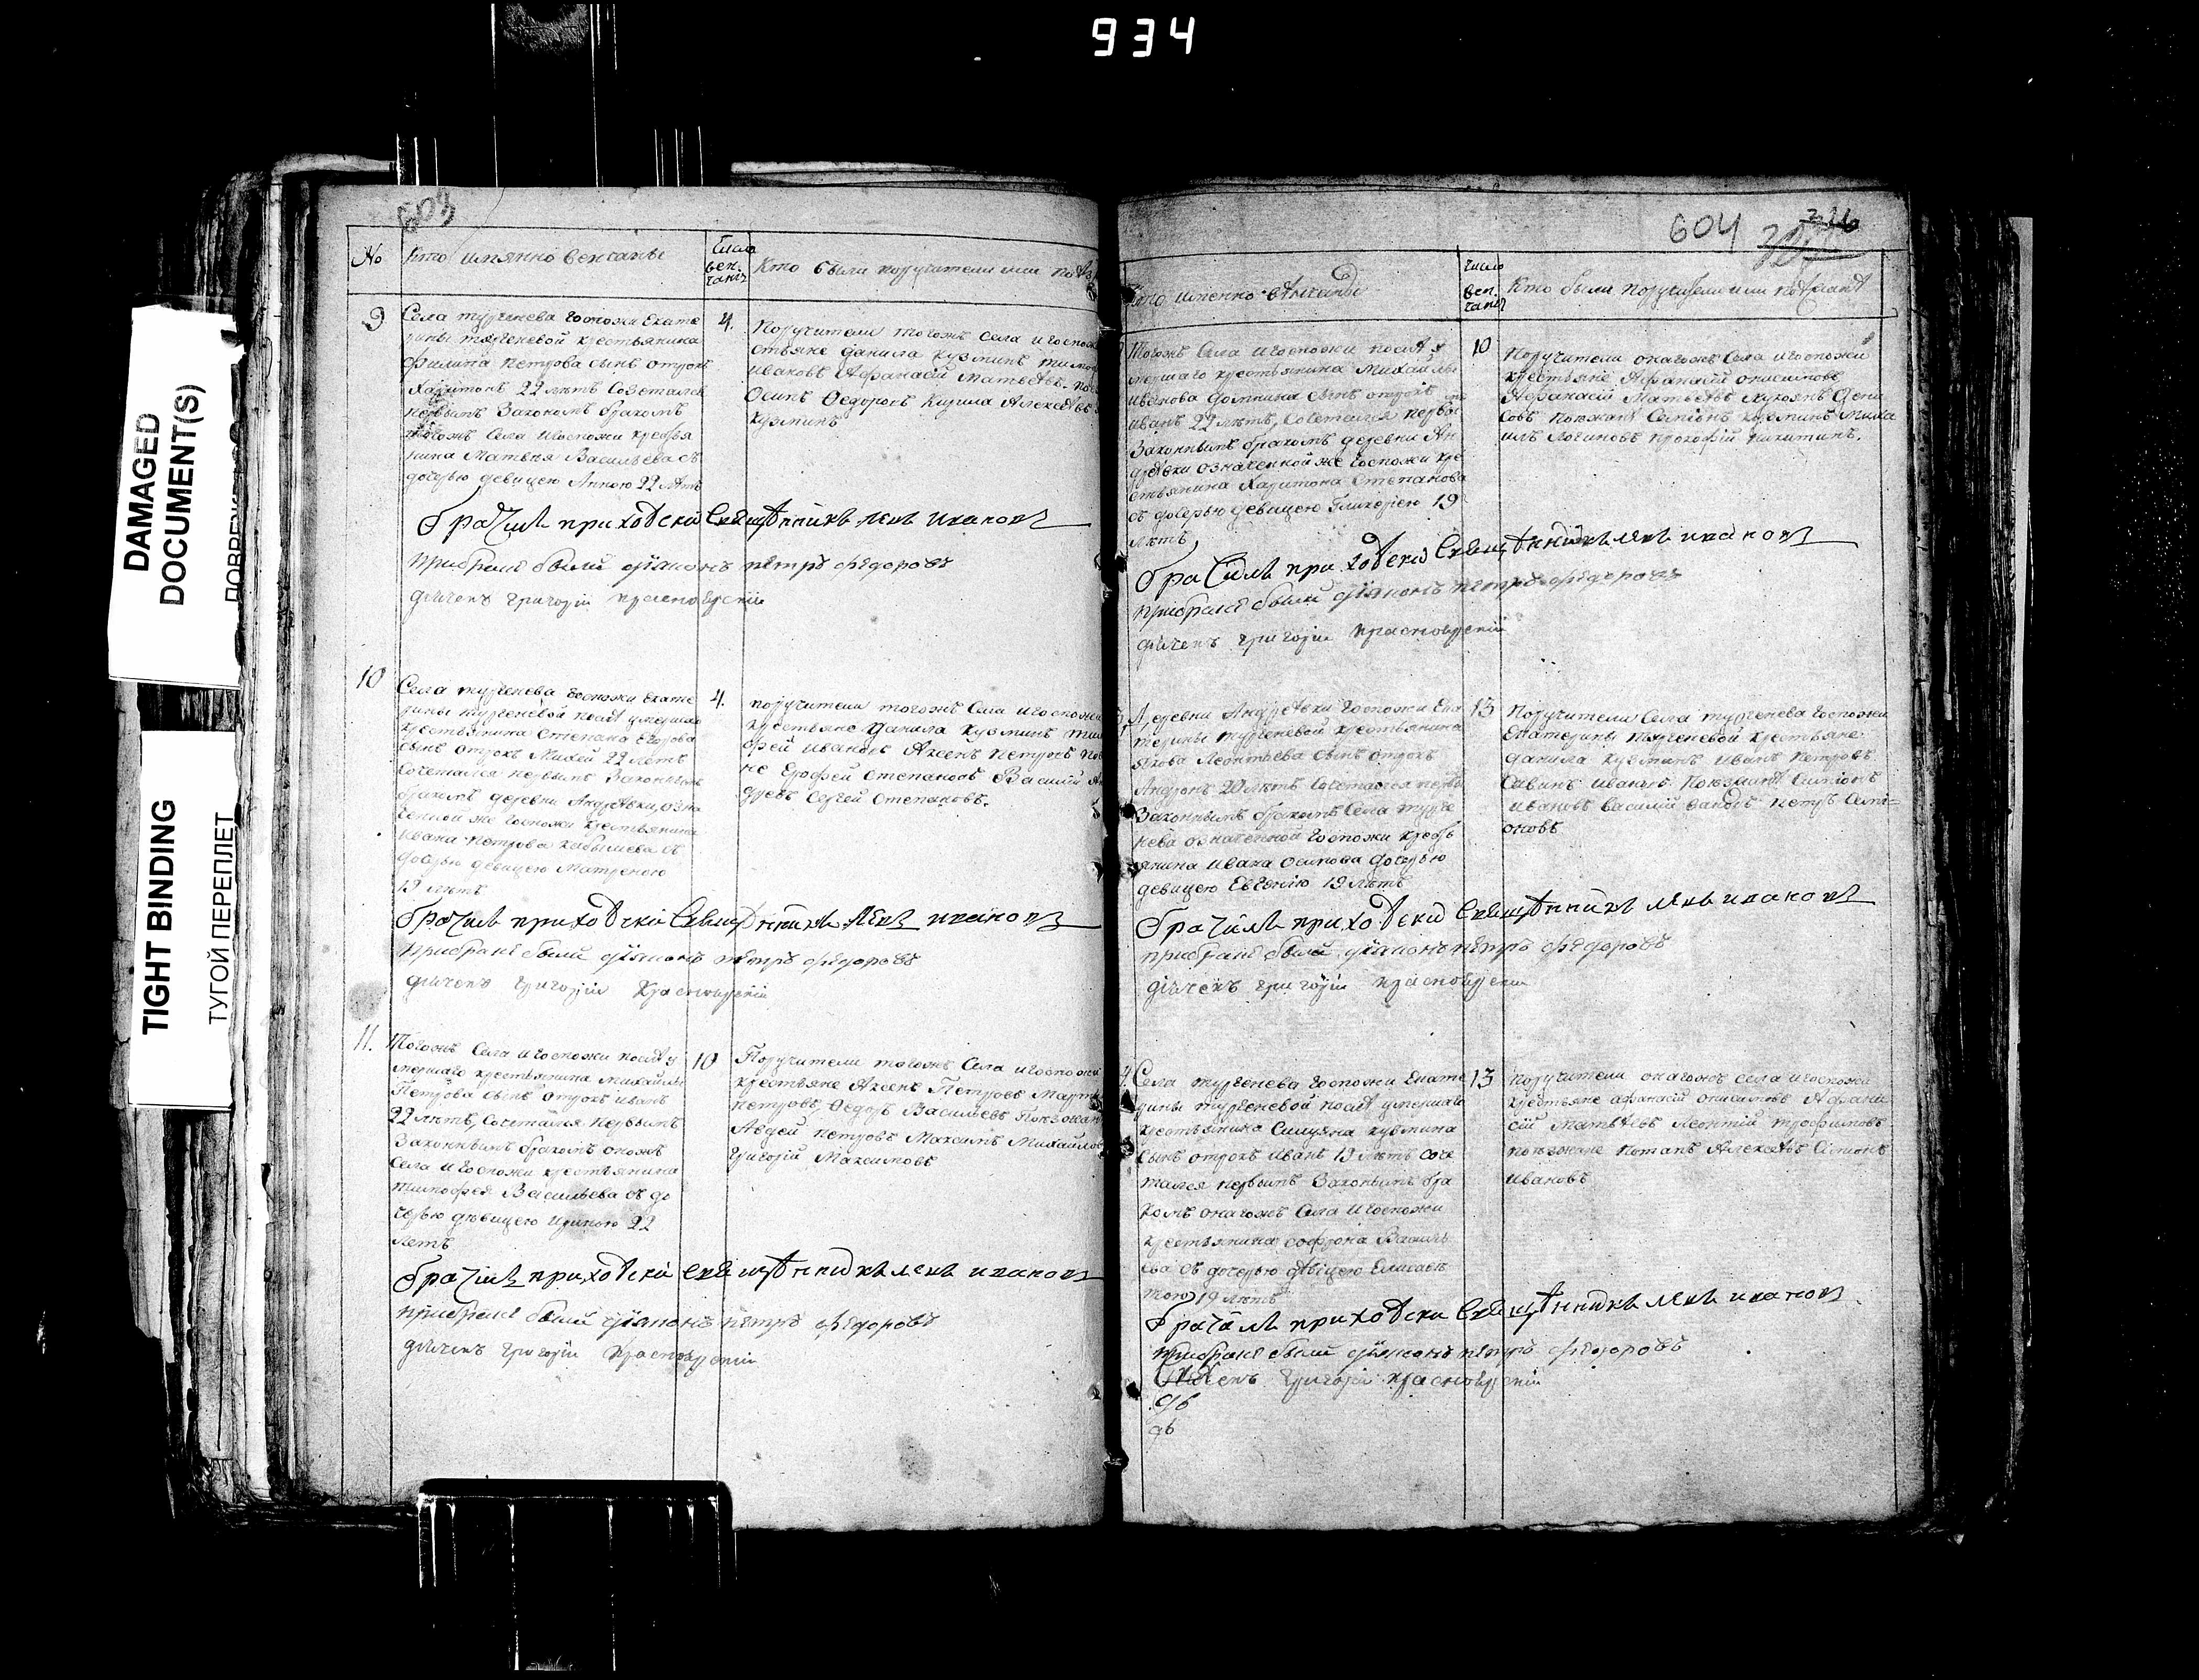 934
DAMAGED
DOCUMENT(S)
TIGHT BINDING
ТУГОЙ ПЕРЕПЛЕТ
603
№ Кто имянно венчаны
Число вен. чанія
Кто были поручители или
9
Села тургенева Госпожи Екате
рины тургеневой крестьянина
Филипа Петрова сынъ отрокъ
Харитонъ 22 лѣтъ Сочетался
первымъ Законнымъ бракомъ
тогожъ Села и Госпожи крестья
нина Матвея Васильева съ
дочерью девицею Анною 22 лѣтъ
4.
Поручители тогожъ села и госпожи
стьяне данила Кузминъ
ивановъ Афанасій Матвѣевъ.
Осипъ Ѳедоровъ Кирила Алексѣевъ
Кузминъ
брачилъ приходскій Священникъ левъ ивановъ
при браке были дїяконъ петръ федоровъ
дьячекъ григорїи
10
Села тургенева госпожи Екате
рины тургеневой после умершаго
крестьянина Степана Егорова
сынъ отрокъ Михей 22 летъ
Сочетался первымъ Законнымъ
бракомъ деревни Андрѣвки, озна
ченной же госпожи крестьянина
Ивана Петрова съ
дочерью девицею Матреною
19 лѣтъ
4.
поручители тогожъ Села и госпожи
крестьяне Данила Кузминъ тимо
фей ивановъ Аксенъ Петровъ
не Ерофей Степановъ Василій Ан
дреевъ Сергей Степановъ.
брачилъ приходскій Священникъ левъ ивановъ
при браке были дїяконъ петръ федоровъ
дьячекъ григорїи
11.
Тогожъ Села и госпожи послѣ у
мершаго крестьянина Михайлы
Петрова сынъ отрокъ иванъ
22 лѣтъ, Сочетался первымъ
Законнымъ бракомъ оногожъ
Села и Госпожи крестьянина
тимофея Васильева съ до
черью дѣвицею Ириною 22
летъ
10
Поручители тогожъ Села и госпожи
крестьяне Аксенъ Петровъ Мартинъ
петровъ, Ѳедоръ Васильевъ
Авдей петровъ Максимъ Михайловъ
Григорій Максимовъ
брачилъ приходскій священникъ левъ ивановъ
при браке были дїяконъ петръ федоровъ
дьячекъ григорїи
604
Кто именно венчаны
число вен. чанія
Кто были поручители или поѣзжанѣ
Тогожъ Села и госпожи послѣ у
мершаго крестьянина Михайлы
иванова сынъ отрокъ
иванъ 22 лѣтъ, Сочетался первы
Законнымъ бракомъ деревни Ан
дрѣвки означенной же госпожи кре
стьянина Харитона Степанова
съ дочерью девицею Гликерею 19
лѣтъ
10
Поручители онагожъ Села и госпожи
крестьяне Афанасій онисимовъ
Афанасій Матвѣевъ Дени
совъ поѣжанѣ Семіонъ кузминъ Миха
илъ Логиновъ прокофій никитинъ.
брачилъ приходскій Священникъ левъ ивановъ
при браке были дїяконъ петръ федоровъ
дьячекъ григорїи
Деревни Андрѣвки госпожи Ека
терины тургеневой крестьянина
якова Леонтьева сынъ отрокъ
Андронъ 20 лѣтъ Сочетался первы
Законнымъ бракомъ Села турге
нева означенной госпожи кресть
янина ивана осипова дочерью
девицею Евгенію 19 лѣтъ
13
Поручители Села тургенева госпожи
Екатерины тургеневой крестьяне
данила Кузминъ иванъ Петровъ
Савинъ ивановъ Поѣзжанѣ Симіонъ
ивановъ василій петръ Семі=
оновъ
брачилъ приходскій Священникъ левъ ивановъ
при браке были дїяконъ петръ федоровъ
дьячекъ григорїи
Села тургенева госпожи Екате
рины тургеневой послѣ умершаго
крестьянина кузмина
сынъ отрокъ иванъ 19 лѣтъ соче
тался первымъ Законнымъ бра
комъ онагожъ Села и госпожи
крестьянина софрона Василь
ева съ дочерью дѣвицею Елисаве
тою 19 лѣтъ
13
поручители онагожъ села и госпожи
крестьяне афанасій онисимовъ Афана
сій Матвѣевъ Леонтій трофимовъ
поѣзжане Потапъ Алексѣевъ Симіонъ
ивановъ
брачилъ приходскій Священникъ левъ ивановъ
при браке были дїяконъ петръ федоровъ
дьячекъ григорїи